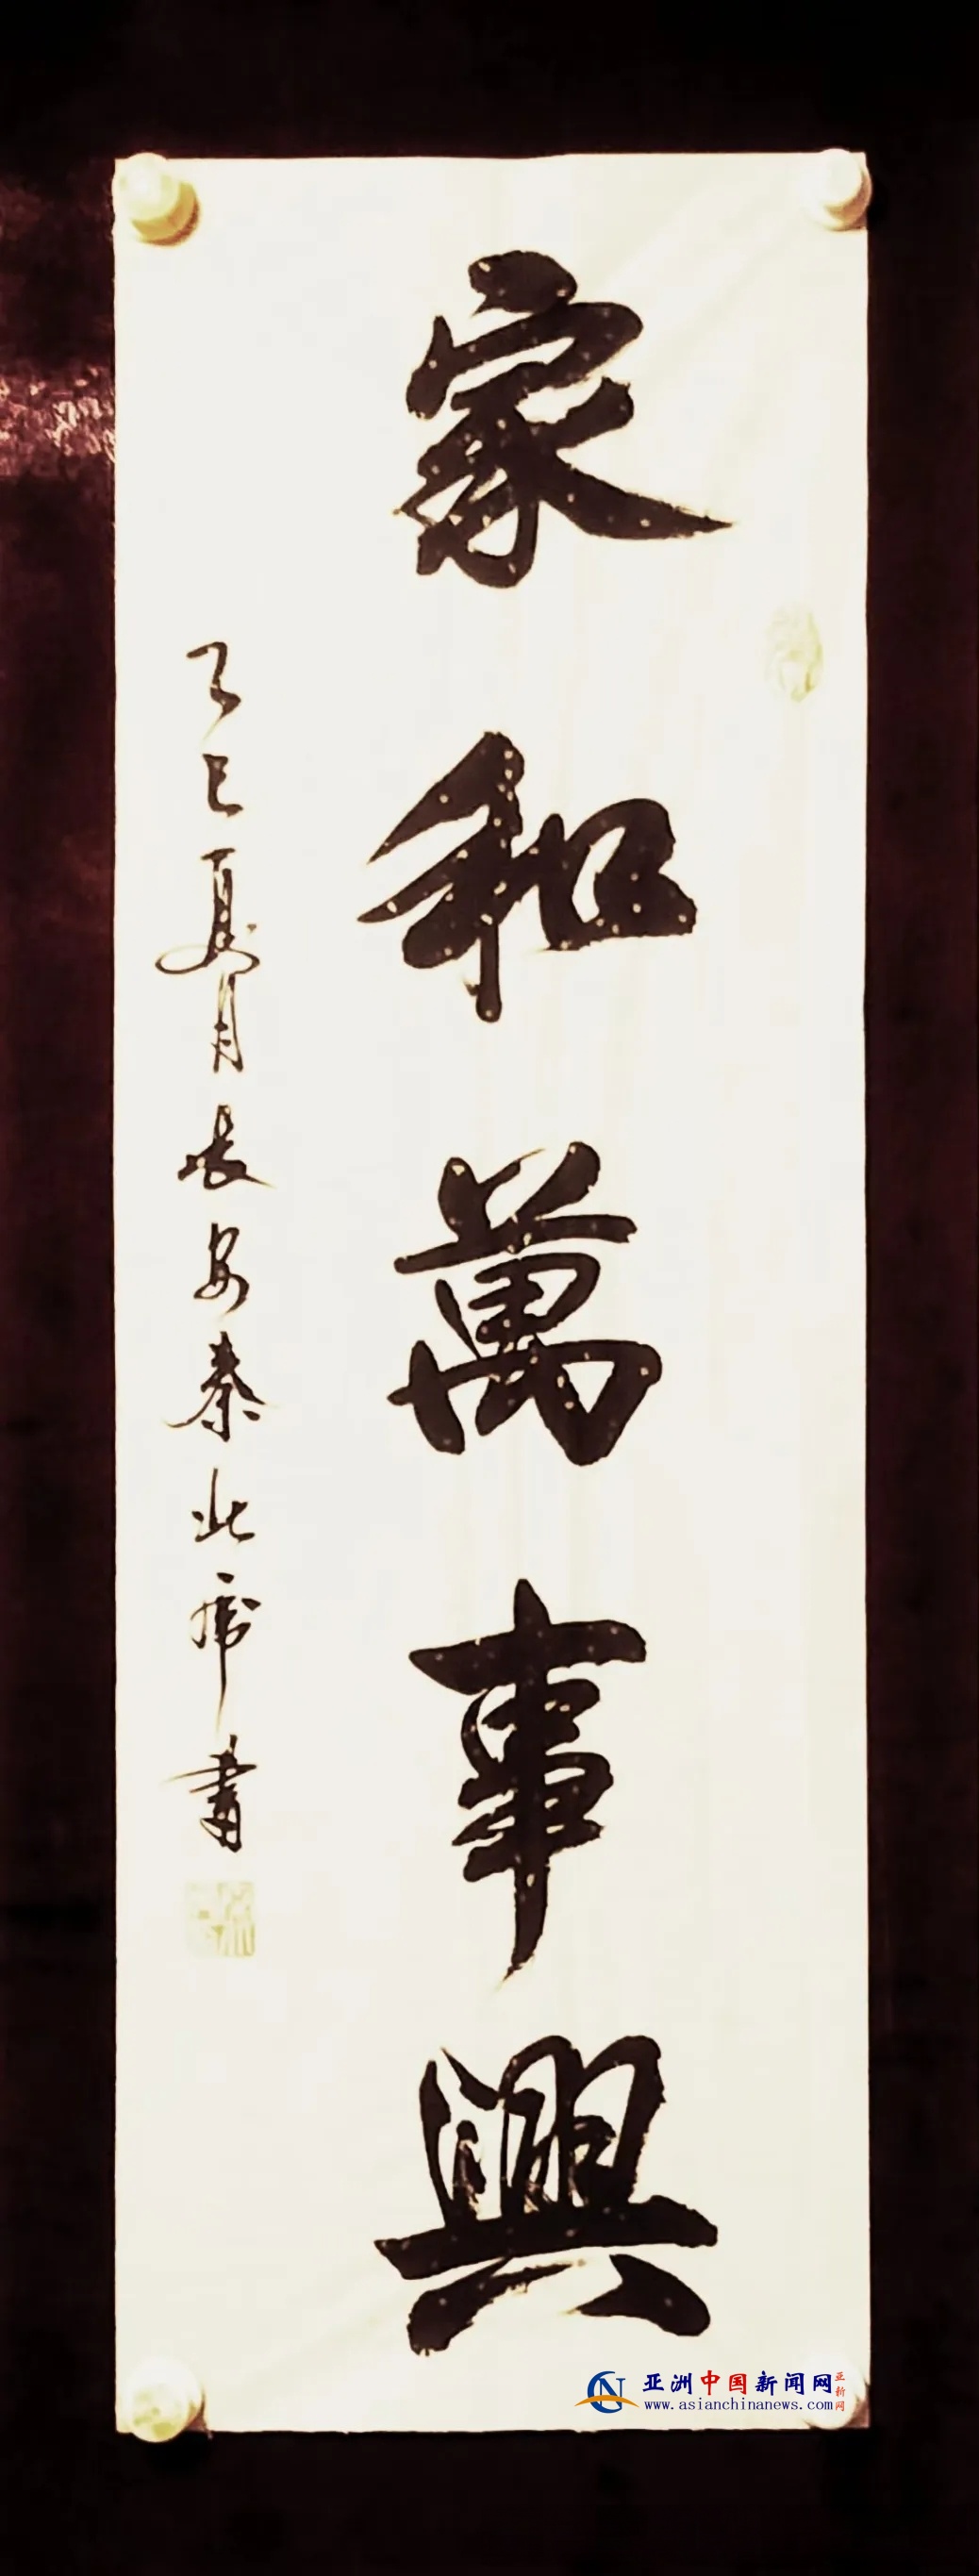 家和萬事興
乙巳夏月長安秦北虎書
亚洲中国新闻网
亚新网
www.asianchinanews.com